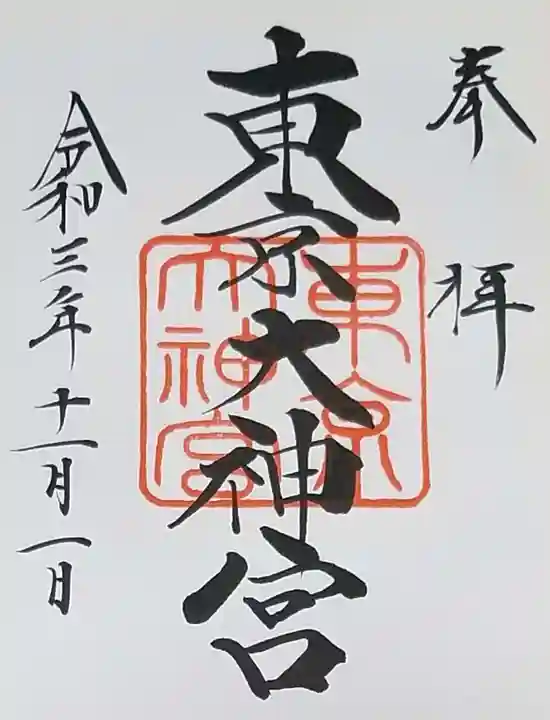 奉拝
東京大神宮
東京
大神宮
令和三年十一月一日